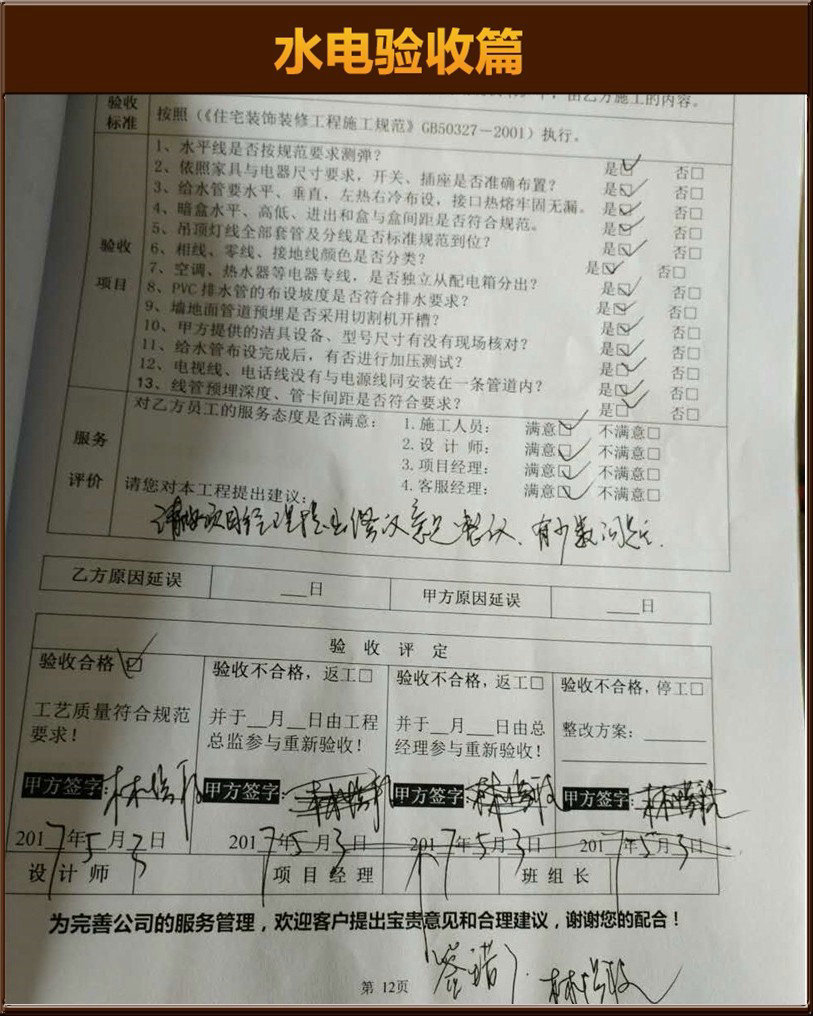 水电验收篇
由乙方施工的内容。
验收标准
按照（《住宅装饰装修工程施工规范》GB50327－2001）执行。
验收项目
1、水平线是否按规范要求测弹？ 是☑ 否□
2、依照家具与电器尺寸要求，开关、插座是否准确布置？ 是☑ 否□
3、给水管要水平、垂直，左热右冷布设，接口热熔牢固无漏。 是☑ 否□
4、暗盒水平、高低、进出和盒与盒间距是否符合规范。 是☑ 否□
5、吊顶灯线全部套管及分线是否标准规范到位？ 是☑ 否□
6、相线、零线、接地线颜色是否分类？ 是☑ 否□
7、空调、热水器等电器专线，是否独立从配电箱分出？ 是☑ 否□
8、PVC排水管的布设坡度是否符合排水要求？ 是☑ 否□
9、墙地面管道预埋是否采用切割机开槽？ 是☑ 否□
10、甲方提供的洁具设备、型号尺寸有没有现场核对？ 是☑ 否□
11、给水管布设完成后，有否进行加压测试？ 是☑ 否□
12、电视线、电话线没有与电源线同安装在一条管道内？ 是☑ 否□
13、线管预埋深度、管卡间距是否符合要求？ 是☑ 否□
服务评价
对乙方员工的服务态度是否满意：
1.施工人员： 满意☑ 不满意□
2.设计师： 满意☑ 不满意□
3.项目经理： 满意☑ 不满意□
4.客服经理： 满意☑ 不满意□
请您对本工程提出建议：
乙方原因延误 ___日 甲方原因延误 ___日
验收评定
验收合格☑ 验收不合格，返工□ 验收不合格，返工□ 验收不合格，停工□
工艺质量符合规范要求！
并于__月__日由工程总监参与重新验收！
并于__月__日由总经理参与重新验收！
整改方案：
甲方签字： 甲方签字： 甲方签字： 甲方签字：
2017年5月3日 2017年5月3日 2017年5月3日 2017年5月3日
设计师 项目经理 班组长
为完善公司的服务管理，欢迎客户提出宝贵意见和合理建议，谢谢您的配合！
第 12页